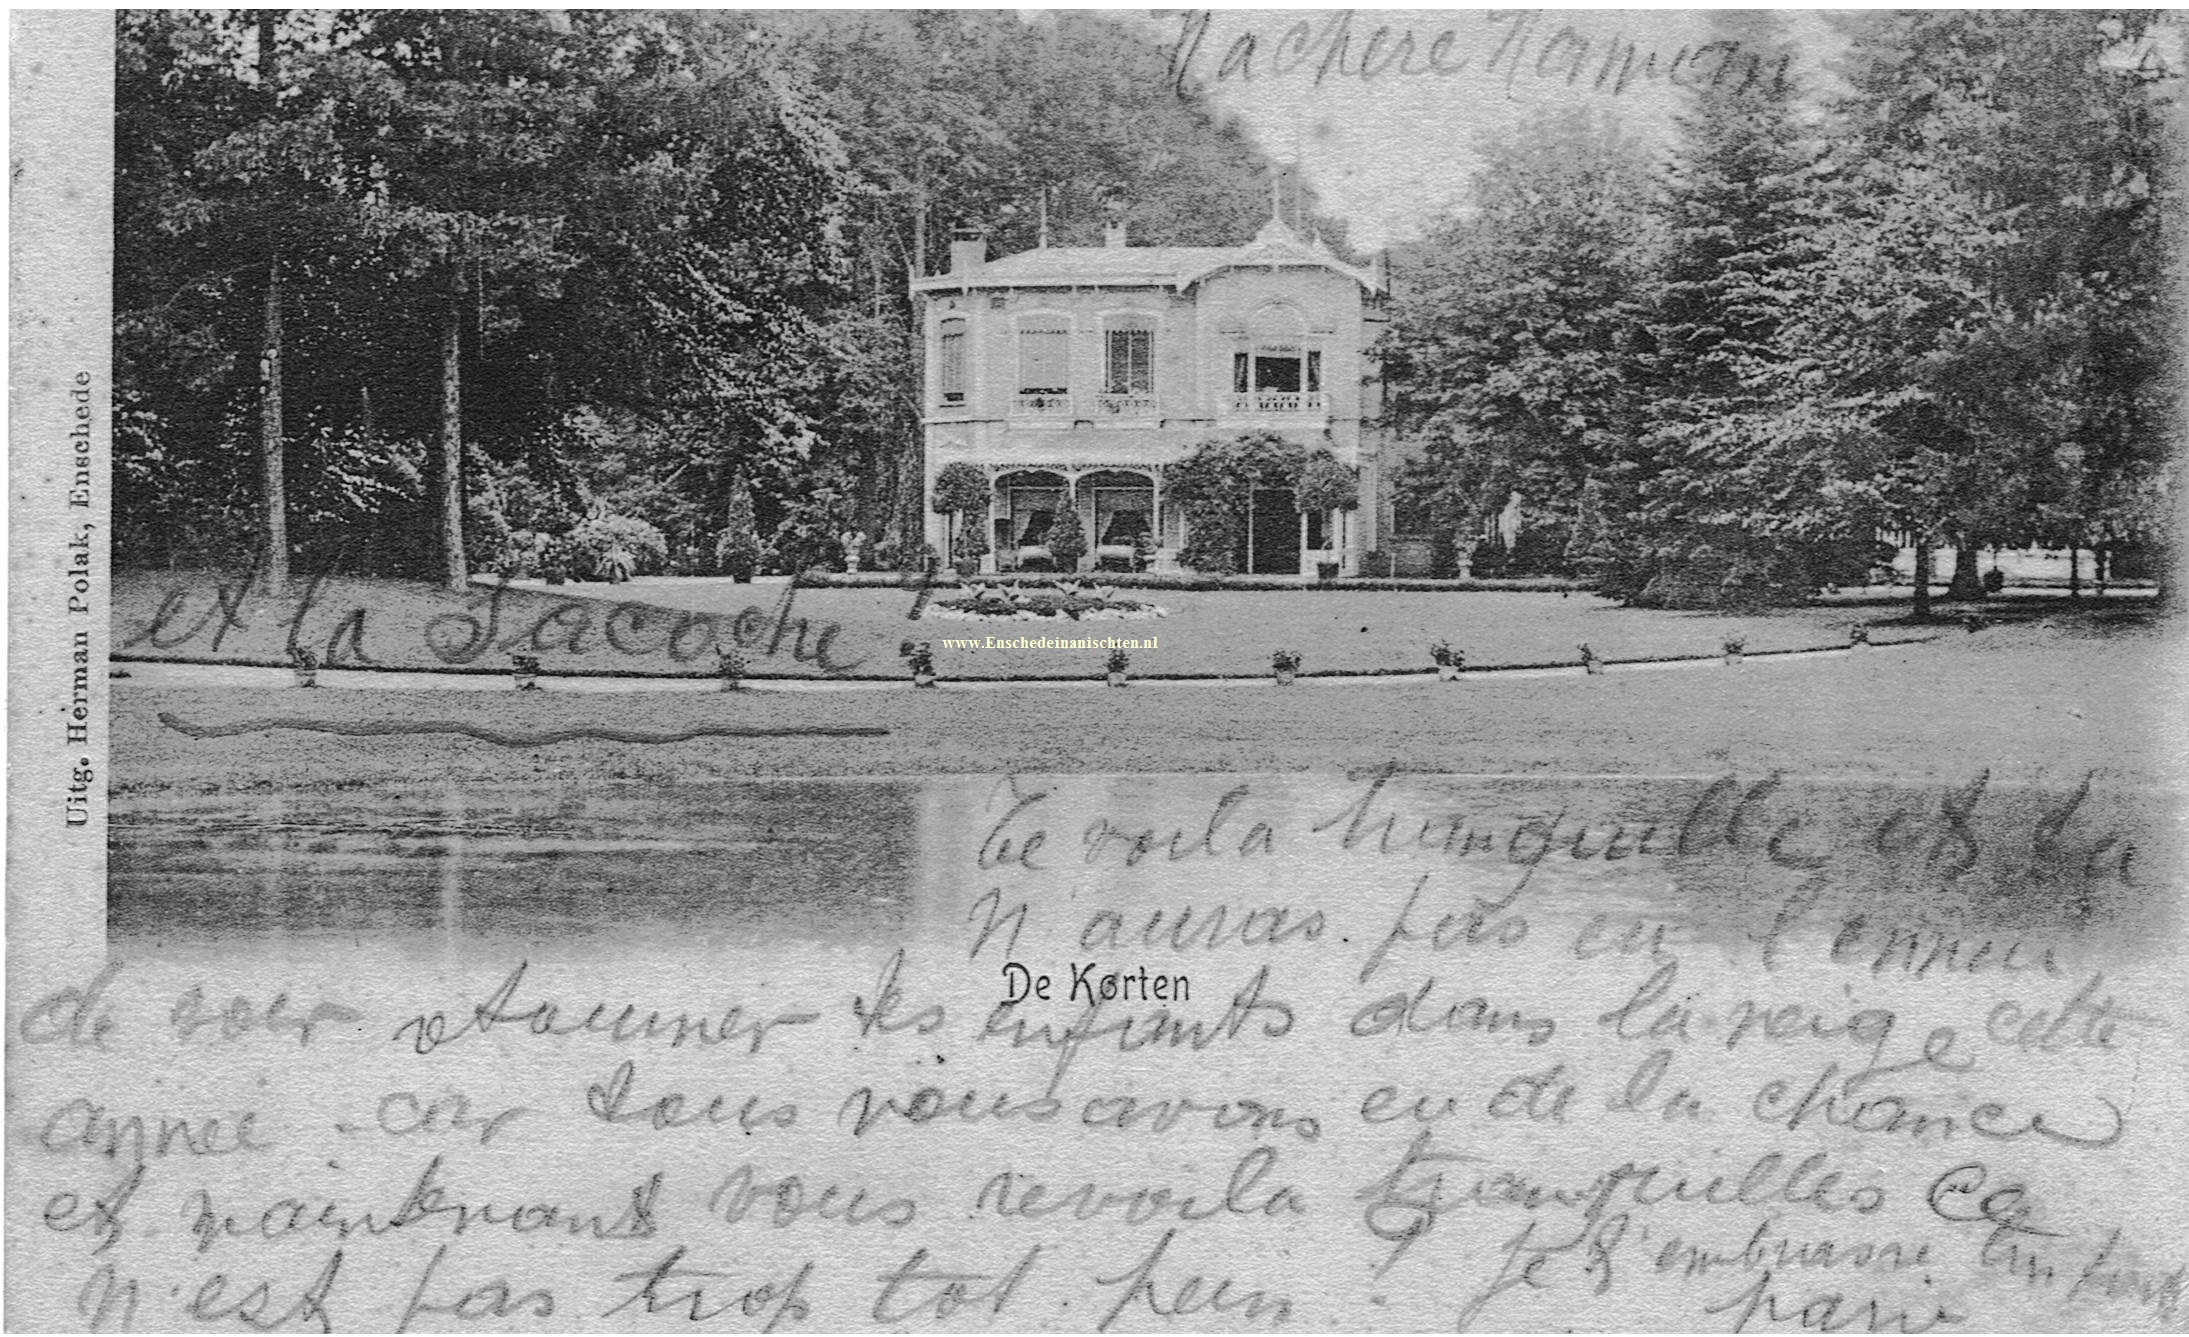 Ma chere Maman
Uitg. Herman Polak, Enschede
et la Sacoche!
www.Enschedeinanischten.nl
Te voila tranquille et tu
n'auras pas eu l'ennui
De Korten
de voir retourner les enfants dans la neige cette
année car tous vous avons eu de la chance
et maintenant vous revoila tranquilles Ca
n'est pas trop tot hein! Je t'embrasse